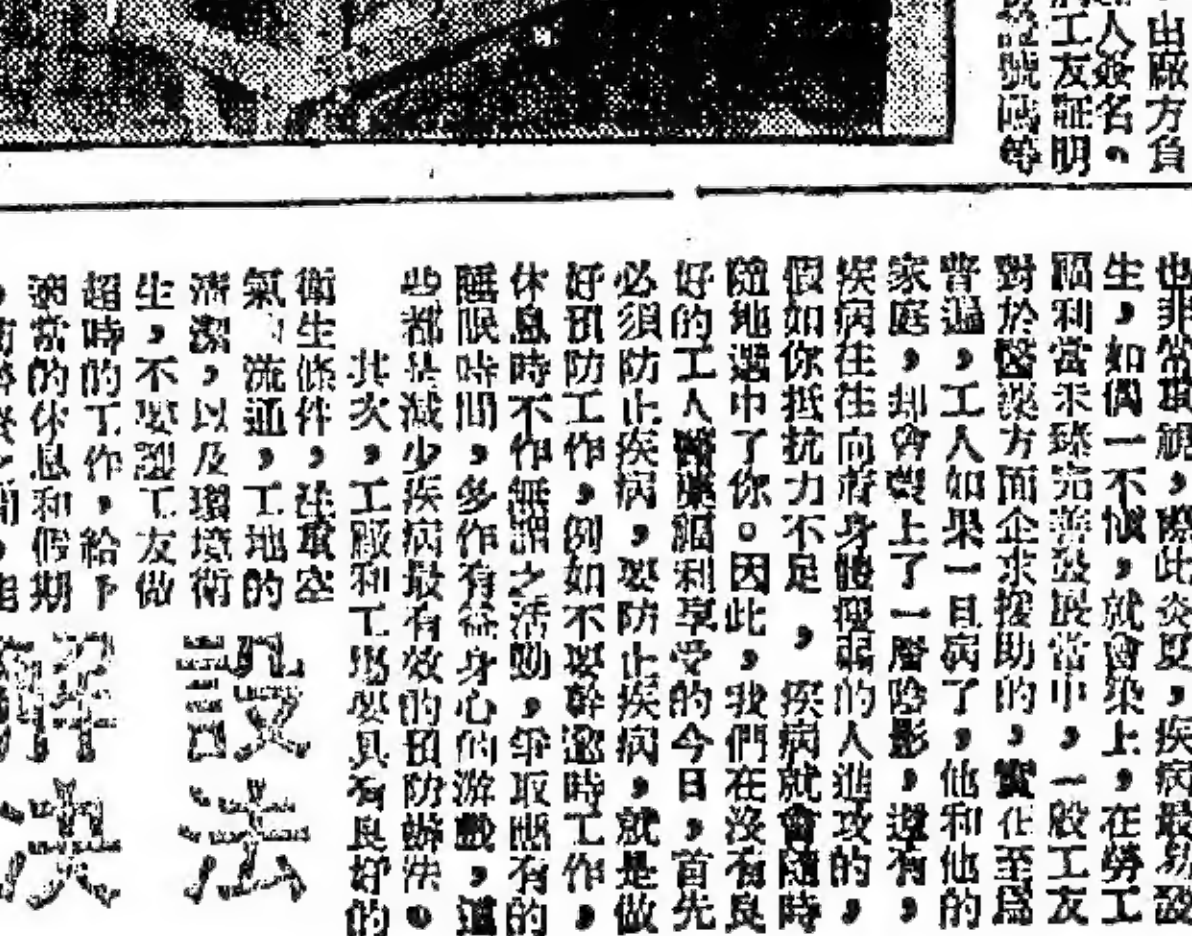 出廠方負
人簽名。
工友証明
號碼等
也非常壞，際此炎夏，疾病最易設
生，如偶一不愼，就會染上，在勞工
福利當未臻完善發展當中，一般工友
對於醫藥方面企求援助的，實在至爲
普遍，工人如果一旦病了，他和他的
家庭，却會蒙上了一層陰影，還有，
疾病往往向着身體瘦弱的人進攻的，
假如你抵抗力不足，疾病就會隨時
隨地選中了你。因此，我們在沒有良
好的工人醫藥福利享受的今日，首先
必須防止疾病，要防止疾病，就是做
好預防工作，例如不要幹逾時工作，
休息時不作無謂之活動，爭取應有的
睡眠時間，多作有益身心的游戲，這
些都是減少疾病最有效的預防辦法。
其次，工廠和工場要具有良好的
衞生條件，注意空
氣的流通，工地的
清潔，以及環境衞
生，不要讓工友做
超時的工作，給予
適當的休息和假期
設法
解決